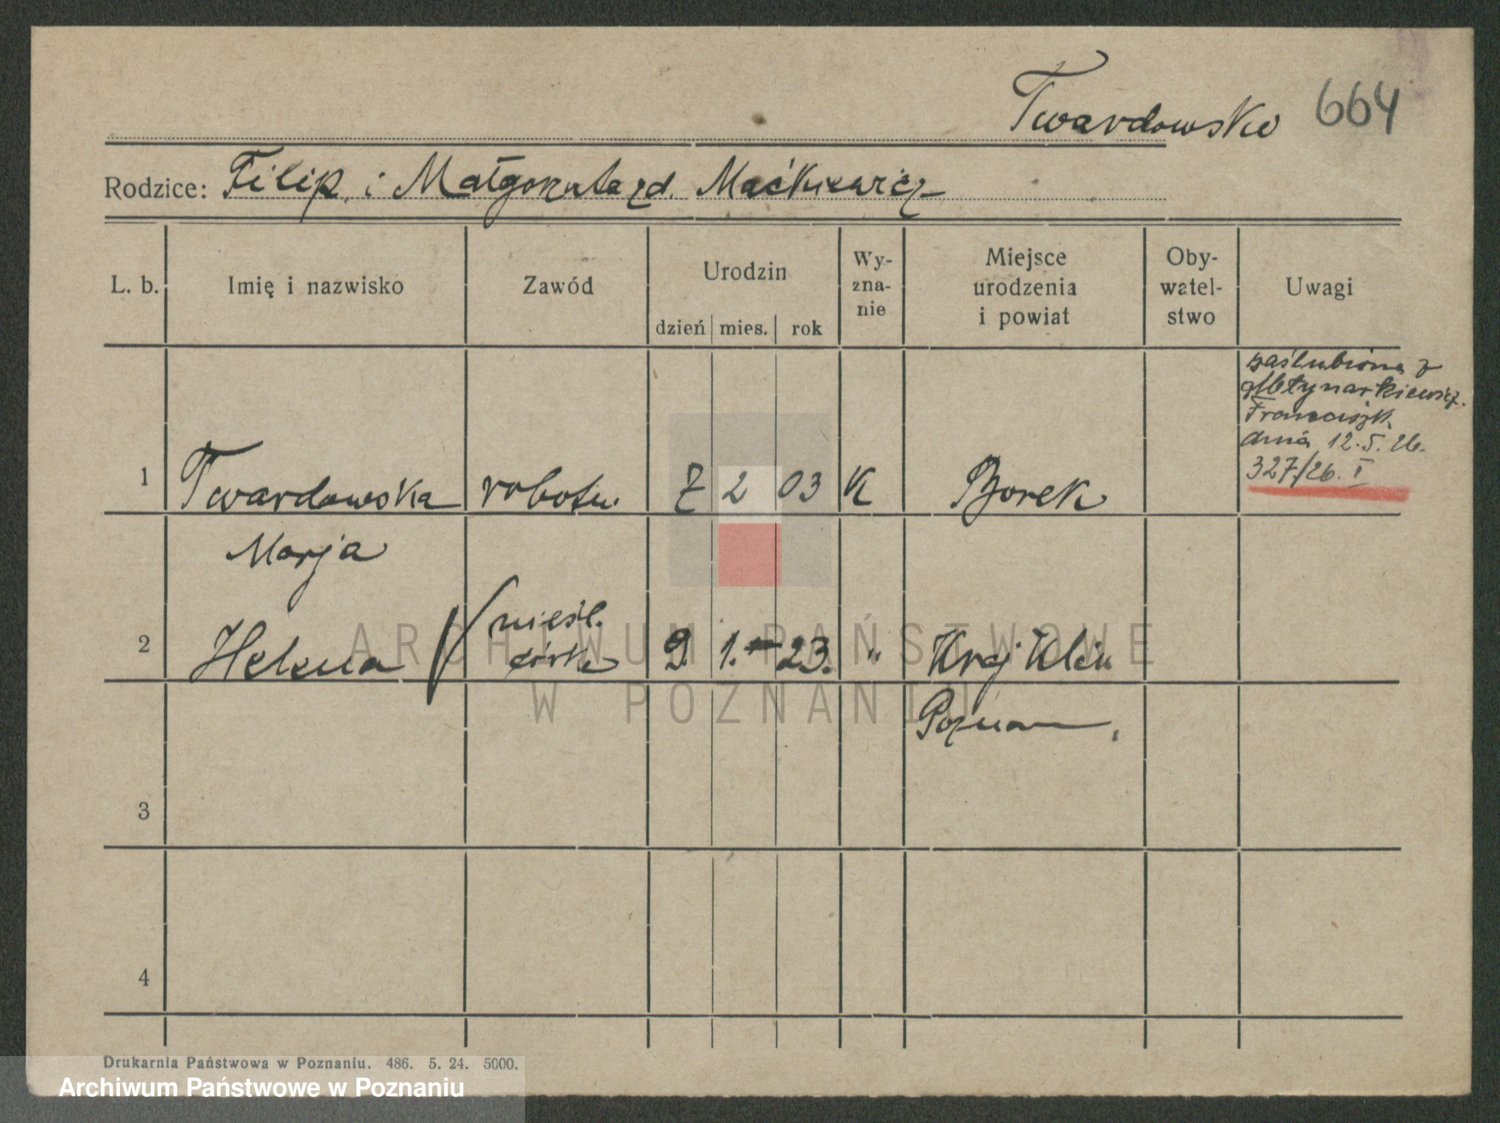 Twardowska 664
Rodzice: Filip i Małgorzata zd. Maćkiewicz
L. b. Imię i nazwisko Zawód Urodzin dzień mies. rok Wy-zna-nie Miejsce urodzenia i powiat Oby-watel-stwo Uwagi
zaślubiona z
Młynarkiewicz
Franciszk.
dnia 12.5.26.
327/26. I
1 Twardowska robotn. 7 2 03 K Borek
Marja
nieśl.
2 Helena córka 9. 1. 23. " Kraj Klin
Poznan
3
4
ARCHIWUM PAŃSTWOWE
W POZNANIU
Drukarnia Państwowa w Poznaniu. 486. 5. 24. 5000.
Archiwum Państwowe w Poznaniu